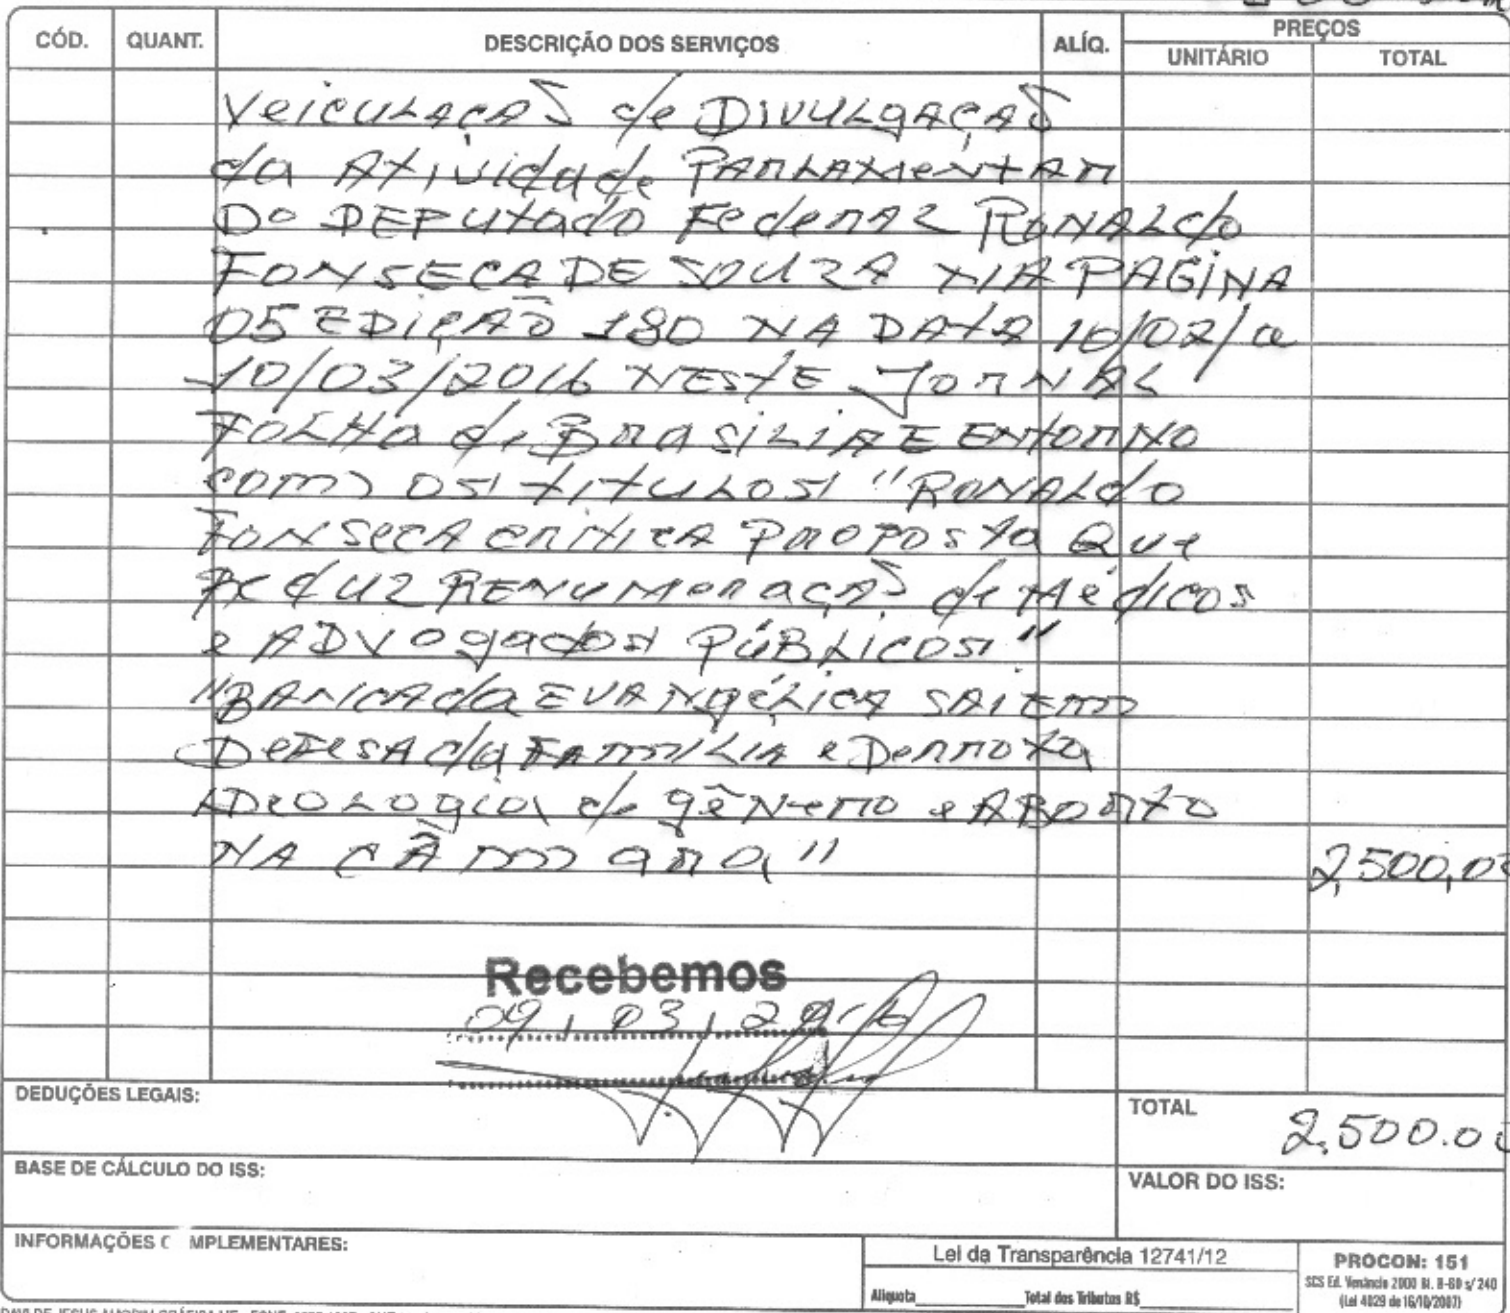 CÓD. QUANT. DESCRIÇÃO DOS SERVIÇOS ALÍQ. PREÇOS
UNITÁRIO TOTAL
Veiculação de Divulgação
da Atividade Parlamentar
Do DEPutado Federal Ronaldo
Fonseca de Souza na Pagina
05 Edição 180 na Data 10/02/a
10/03/2016 neste Jornal
Folha de Brasilia e Entorno
com os titulos "Ronaldo
Fonseca critica proposta que
reduz renumoração de Médicos
e Advogados Públicos"
"Bancada Evangélica sai em
Defesa da Familia e Derrota
Ideologia de gênero e Aborto
na Câmara"
2,500,0
Recebemos
09 03
DEDUÇÕES LEGAIS:
TOTAL 2.500.0
BASE DE CÁLCULO DO ISS:
VALOR DO ISS:
INFORMAÇÕES C MPLEMENTARES:
Lei da Transparência 12741/12
Alíquota Total dos Tributos R$
PROCON: 151
SCS Ed. Venâncio 2000 Bl. B-60 s/ 240
(Lei 4029 de 16/10/2007)